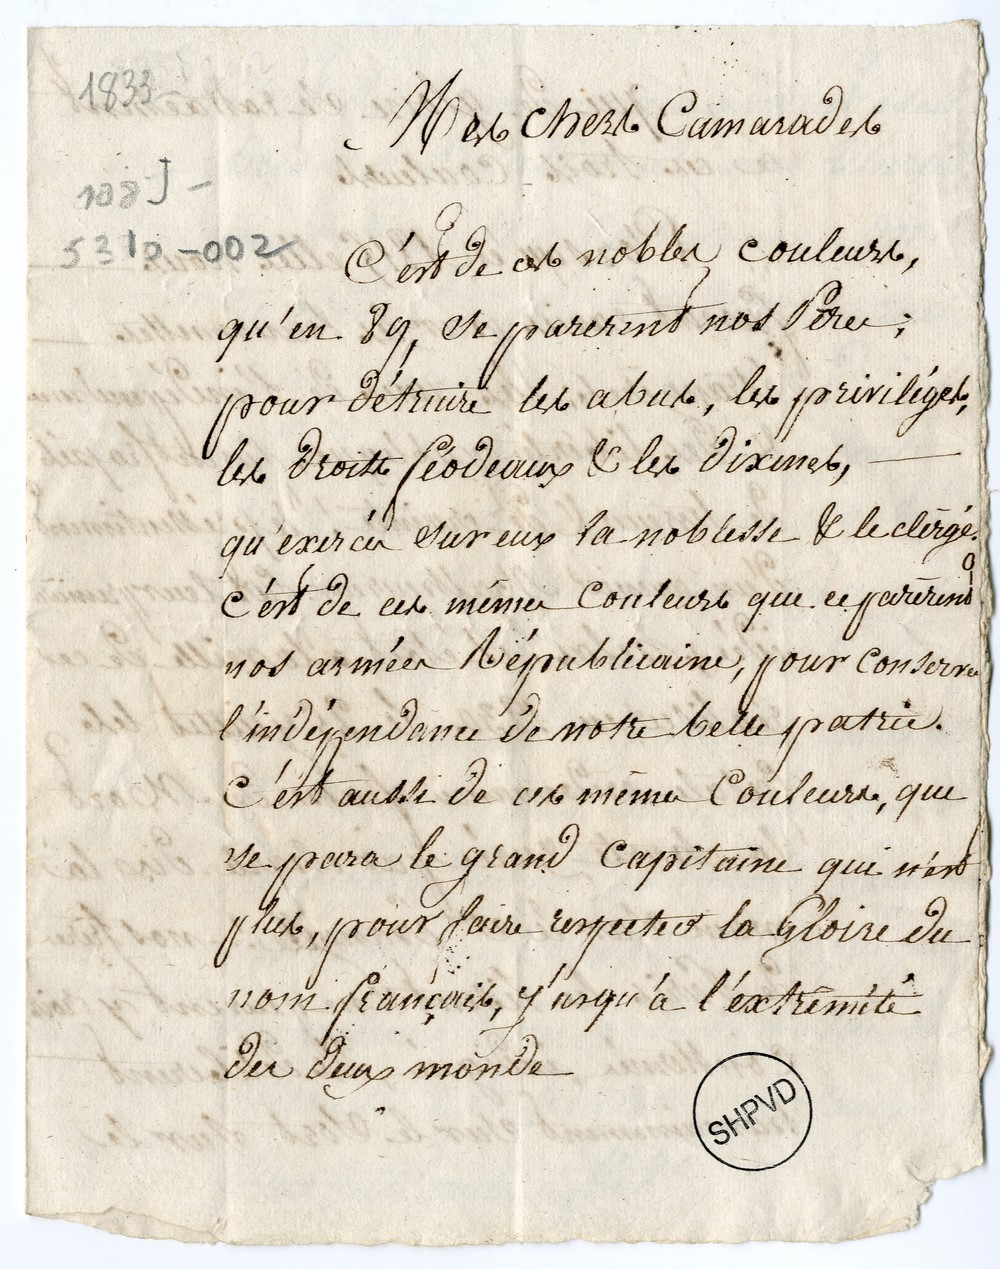 1833
Mes chers Camarades
108J -
5310 - 002
C'est de ces nobles couleurs,
qu'en 89, se parerent nos Peres;
pour détruire les abus, les priviléges,
les droits féodeaux & les dixmes, —
qu'exercés sur eux la noblesse & le clèrgé.
C'est de ces mêmes couleurs que ce parèrent
nos armées Républicaine, pour conserver
l'indépendance de notre belle patrie.
C'est aussi de ces mêmes Couleurs, que
se para le grand Capitaine qui n'est
plus, pour faire respecter la Gloire du
nom français, j'usqu'à l'éxtrêmité
des deux mondes
SHPVD